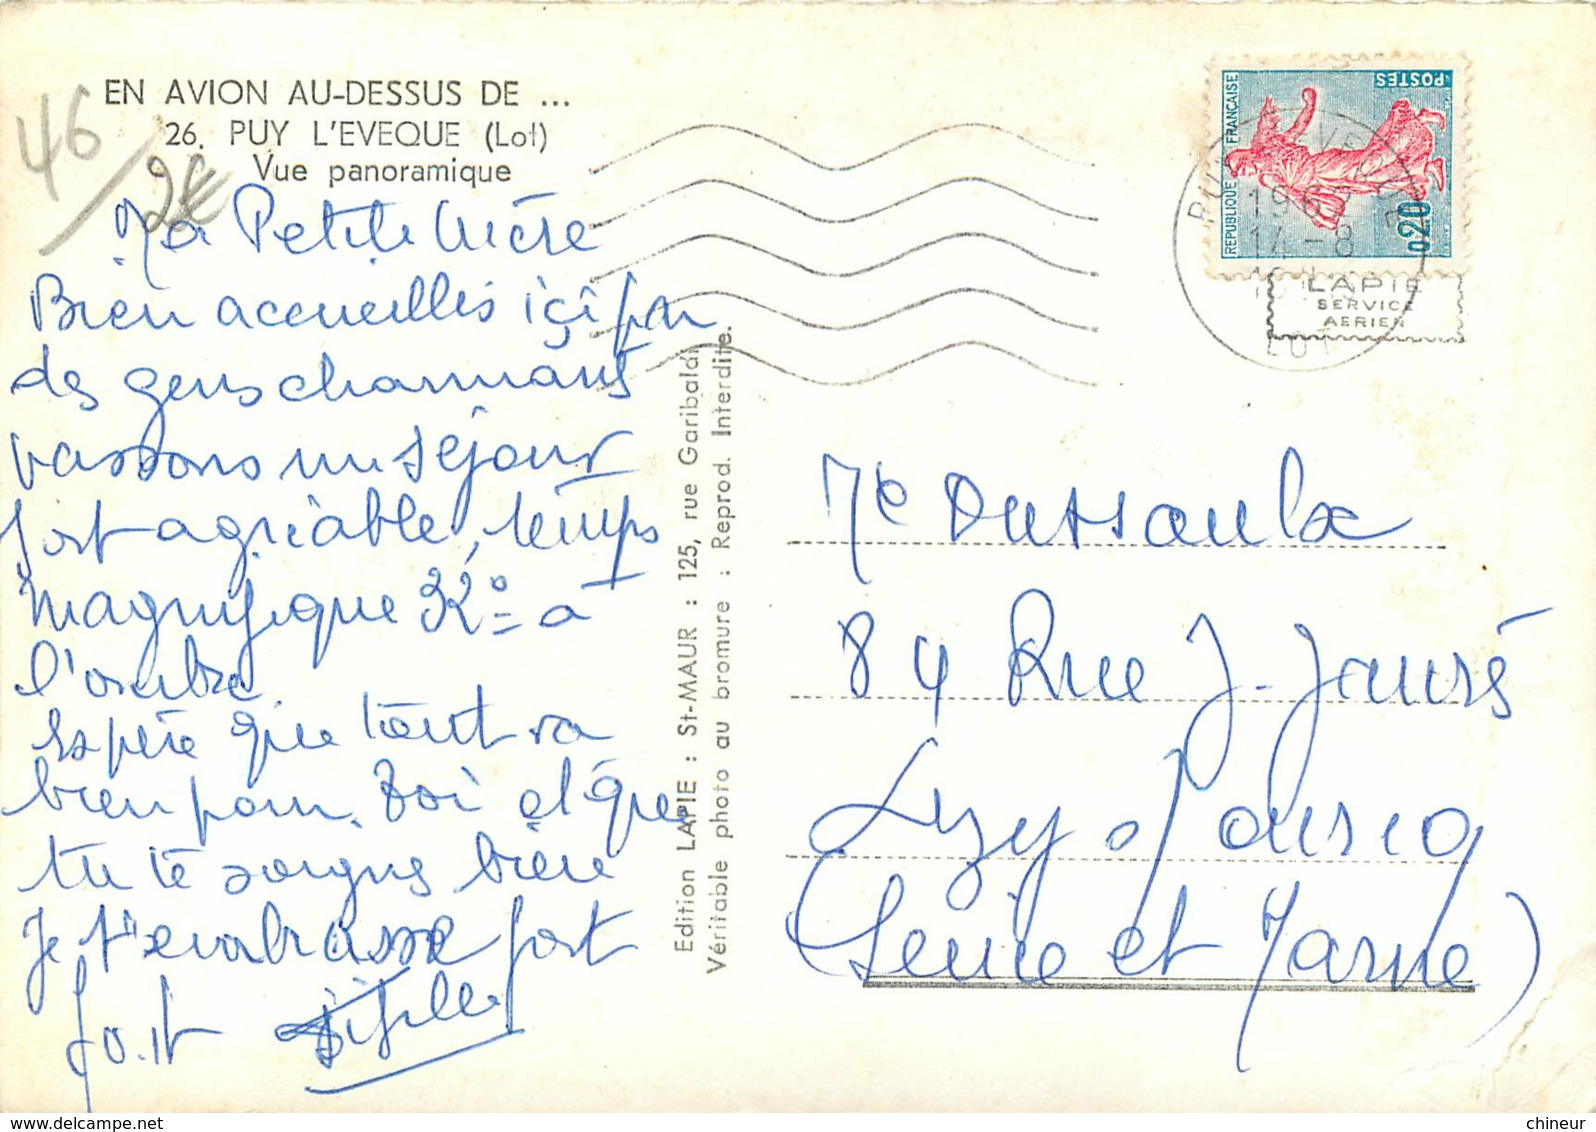 EN AVION AU-DESSUS DE ...
26. PUY L'EVEQUE (Lot)
Vue panoramique
46
2€
Ma Petite Mère
Bien accueillis içi par
des gens charmants
passons un séjour
fort agréable, temps
magnifique 32° = à
l'ombre
Espère que tout va
bien pour Toi et que
tu te soignes bien
Je t'embrasse fort
fort
Edition LAPIE : St-MAUR : 125, rue Garibaldi
Véritable photo au bromure : Reprod. Interdite.
REPUBLIQUE FRANÇAISE
POSTES
0,20
14 - 8
LOT
LAPIE
SERVICE
AERIEN
Me Dussaulx
84 Rue J. Jaurès
Lizy s/ Ourcq
(Seine et Marne)
chineur